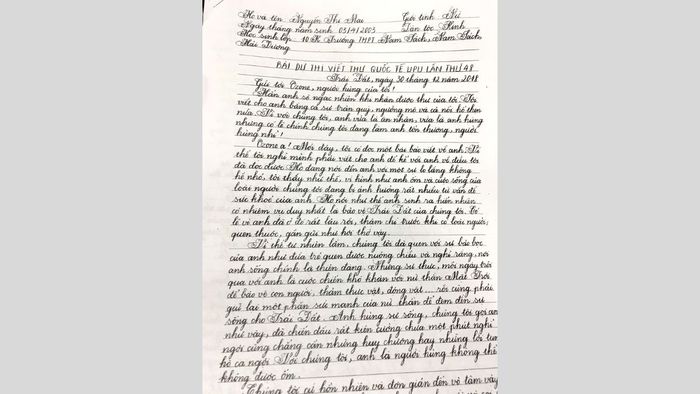 Họ và tên Nguyễn Thị Mai Giới tính Nữ
Ngày tháng năm sinh 03/4/2003 Dân tộc Kinh
Học sinh lớp 10 K Trường THPT Nam Sách, Nam Sách,
Hải Dương
BÀI DỰ THI VIẾT THƯ QUỐC TẾ UPU LẦN THỨ 48
Trái Đất, ngày 30 tháng 12 năm 2018
Gửi tới Ozone, người hùng của tôi!
Hẳn anh sẽ ngạc nhiên khi nhận được thư của tôi. Tôi
viết cho anh bằng cả sự trân quý, ngưỡng mộ và cả nỗi hổ thẹn
nữa. Vì với chúng tôi, anh vừa là ân nhân, vừa là anh hùng
nhưng có lẽ chính chúng tôi đang làm anh tổn thương, người
hùng nhỉ!
Ozone ạ! Mới đây, tôi có đọc một bài báo viết về anh. Vì
thế tôi nghĩ mình phải viết cho anh để kể với anh về điều tôi
đã đọc được. Họ đang nói đến anh với một sự lo lắng không
hề nhỏ, tôi thấy như thế, vì hình như anh ốm và cuộc sống của
loài người chúng tôi đang bị ảnh hưởng rất nhiều từ vấn đề
sức khỏe của anh. Họ nói như thể anh sinh ra hiển nhiên
có nhiệm vụ duy nhất là bảo vệ Trái Đất của chúng tôi. Có
lẽ vì anh đã ở đó rất lâu rồi, thậm chí trước khi có loài người,
quen thuộc, gần gũi như hơi thở vậy.
Vì thế tự nhiên lắm, chúng tôi đã quen với sự bảo bọc
của anh như đứa trẻ quen được nuông chiều và nghĩ rằng, nơi
anh sống chính là thiên đàng. Nhưng sự thực, mỗi ngày trôi
qua với anh là cuộc chiến khó khăn với nữ thần Mặt Trời
để bảo vệ con người, thảm thực vật, động vật.... rồi cũng phải
giữ lại một phần sức mạnh của nữ thần để đem đến sự
sống cho Trái Đất. Anh hùng sự sống, chúng tôi gọi anh
như vậy, đã chiến đấu rất kiên cường chưa một phút nghỉ
ngơi cũng chẳng cần những huy chương hay những lời tung
hô ca ngợi. Với chúng tôi, anh là người hùng không thể
không được ốm.
Chúng tôi cứ hồn nhiên và đơn giản đến vô tâm vậy